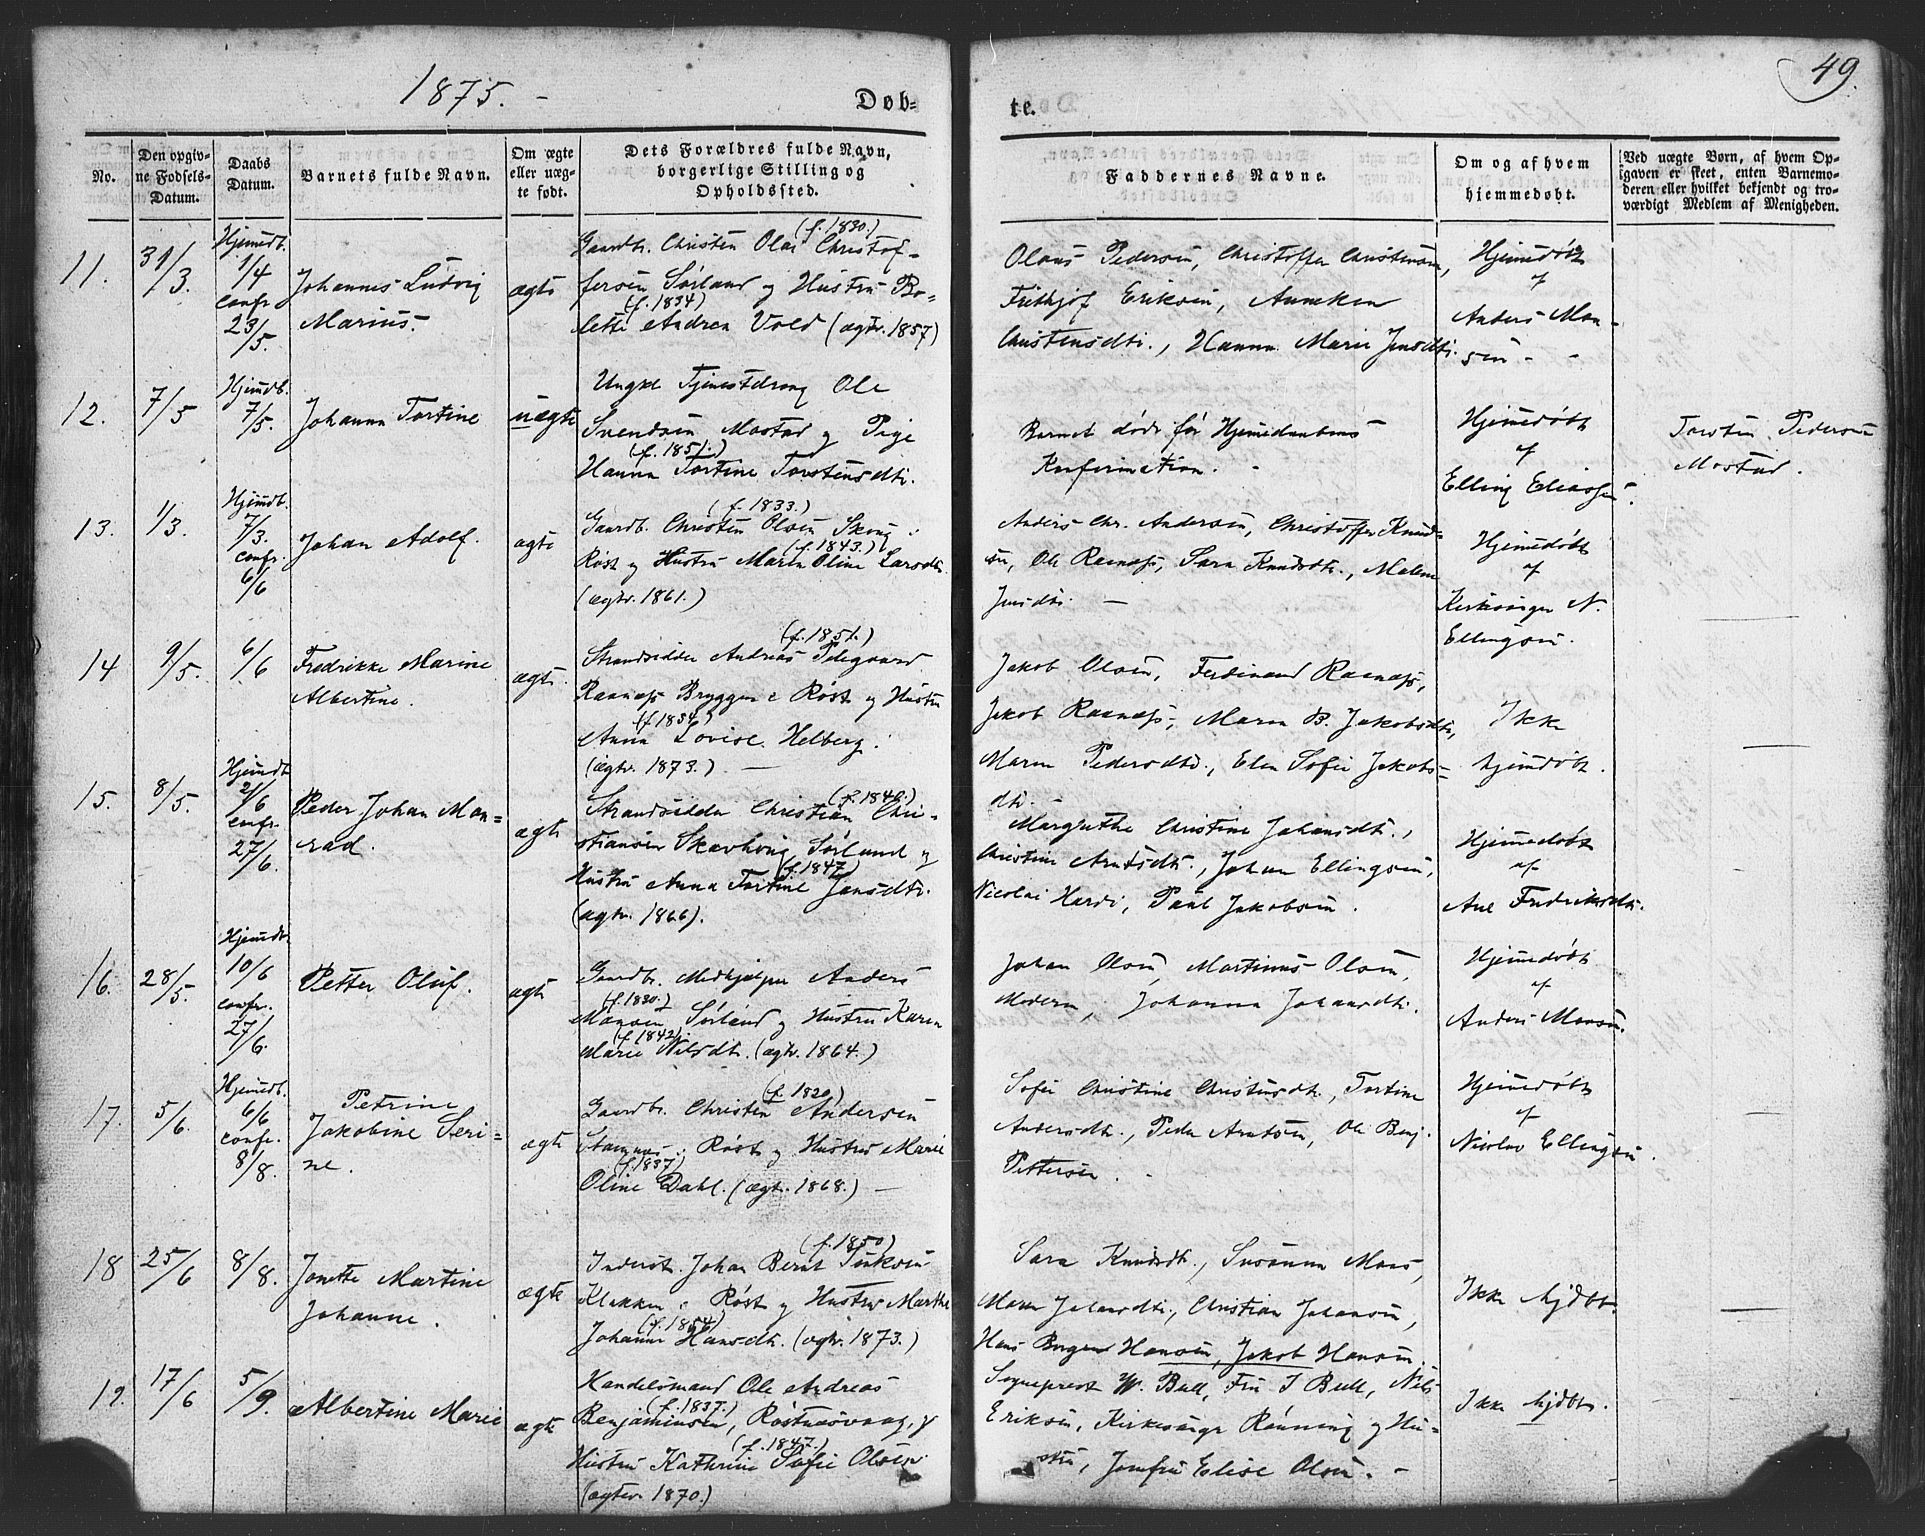 1875. -
Døb-
te.
49.
No.
Den opgiv-
ne Fødsels-
Datum.
Daabs
Datum.
Barnets fulde Navn.
Om ægte
eller uæg-
te født.
Dets Forældres fulde Navn,
borgerlige Stilling og
Opholdssted.
Faddernes Navne.
Om og af hvem
hjemmedøbt.
Ved uægte Børn, af hvem Op-
gaven er skeet, enten Barnemo-
deren eller hvilket bekjendt og tro-
værdigt Medlem af Menigheden.
11.
31/3.
Hjemdb.
1/4
confr
23/5.
Johannes Ludvig
Marius.
ægte
(f. 1830.)
Gaardbr. Christen Olai Christof-
fersen Sørland og Hustru Bo-
(f. 1834)
lette Andrea Vold (ægtv. 1857)
Olaus Pedersen, Christoffer Christensen,
Frithjof Eriksen, Anneken
Christensdtr., Hanna Marie Jensdtr.
Hjemedøbt
af
Anders Mon-
sen - -
12.
7/5
Hjemdb.
7/5.
Johanna Tortine
uægte
Ungkl Tjenestdreng Ole
Svendsen Mostad og Pige
(f. 1851.)
Hanna Tortine Torstensdtr.
Barnet døde før Hjemedaabens
Konfirmation. -
Hjemedøbt
af
Elling Eliassen.
Torsten Pedersen
Mostad.
13.
1/3.
Hjemdb.
7/3.
confr.
6/6
Johan Adolf.
ægte
(f. 1833.)
Gaardb. Christen Olsen Skong i
(f. 1843.)
Røst og Hustru Maren Oline Larsdtr.
(ægtv. 1861.)
Anders Chr. Andersen, Christoffer Knud-
sen, Ole Raanæss, Sara Knudsdtr., Malene
Jensdtr. —
Hjemedøbt
af
Kirkesanger N.
Ellingsen.
14
9/5.
6/6
Fredrikke Marine
Albertine.
ægte.
(f. 1851.)
Strandsidder Andreas
Raanæss Bryggen i Røst og Hustru
(f. 1834.)
Anna Lovise Helberg.
(ægtv. 1873.) —
Jakob Olsen, Ferdinand Raanæss,
Jakob Raanæss, Maren B. Jakobsdtr,
Maren Pedersdtr., Elen Sofie Jakobs-
dtr.
Ikke
hjemdøbt.
15.
8/5.
Hjemdb
2/6
confr.
27/6.
Peder Johan Mon-
rad.
ægte
(f. 1840.)
Strandsidder Christian Chri-
stiansen Skavhoug Sørland og
(f. 1847)
Hustru Anna Tortine Jensdtr.
(ægtv. 1866).
Margrethe Christine Johansdtr.,
Christine Arntsdtr., Johan Ellingsen,
Nicolai Hardi, Paul Jakobsen.
Hjemedøbt
af
Ane Fredriksdtr.
16.
28/5.
Hjemdb.
10/6
confr.
27/6.
Petter Oluf.
ægte
Gaardbr. Medhjelper Anders
(f. 1830.)
Monsen Sørland og Hustru Karen
(f. 1842)
Marie Nilsdtr. (ægtv. 1864.)
Johan Olsen, Martinus Olsen,
Moderen, Johanna Johansdtr.
Hjemedøbt
af
Anders Monsen.
17.
5/6.
Hjemdb.
6/6
confr.
8/8.
Petrine
Jakobine Seri-
ne.
ægte
(f. 1820)
Gaardbr. Christen Andersen
Stamnes i Røst og Hustru Marie
(f. 1837)
Oline Dahl. (ægt. 1868.) —
Sofie Christine Christensdtr., Tortine
Andersdtr., Peder Arntsen, Ole Benj.
Pettersen. -
Hjemedøbt
af
Nicolai Ellingsen.
18
25/6
8/8.
Jonette Martine
Johanne.
ægte
(f. 1850)
Inderst. Johan Bernt
Klakken i Røst og Hustru Marthe
(f. 1854)
Johanne Hansdtr. (ægtv. 1873.)
Sara Knudsdtr., Susanna Maas,
Maren Johansdtr., Christian Johansen,
Hans Hansen, Jakob Hansen
Ikke hjdøbt.
19.
17/6
5/9.
Albertine Marie
ægte
Handelsmand Ole Andreas
(f. 1837.)
Benjaminsen, Røstnæsvaag, og
(f. 1847.)
Hustru Kathrine Sofie Olsen
(ægtev 1870.)
Sogneprest W. Bull, Fru I Bull, Nils
Eriksen, Kirkesanger Rønning og Hu-
stru, Jomfru Elise Olsen. -
Ikke hjdøbt.